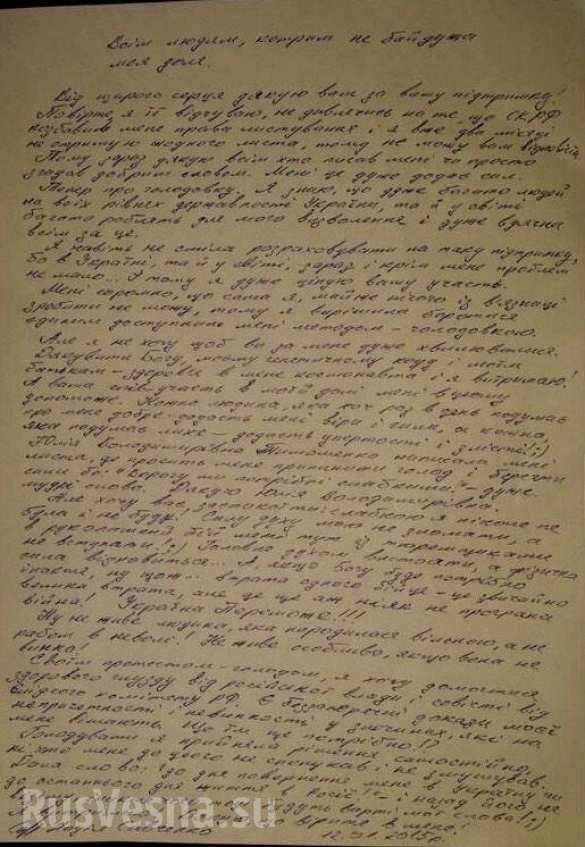 Всім людям, котрим не байдужа
моя доля.
Від щирого серця дякую вам за вашу підтримку!
Повірте, я її відчуваю, не дивлячись на те, що СК РФ
позбавив мене права листування і я вже два місяці
не отримую жодного листа, тому не можу вам відповісти.
Тому зараз дякую всім хто писав мені чи просто
згадав добрим словом. Мені це дуже додає сил.
Тепер про голодовку. Я знаю, що дуже багато людей
на всіх рівнях державності України, та й у світі
багато роблять для мого визволення і дуже вдячна
всім за це.
Я навіть не сміла розраховувати на таку підтримку,
бо в Україні, та й у світі, зараз і крім мене проблем
не мало... І тому я дуже ціную вашу участь.
Мені соромно, що сама я, майже нічого із в'язниці
зробити не можу, тому я вирішила боротися
єдиним доступним мені методом - голодовкою.
Але я не хочу щоб ви за мене дуже хвилювалися.
Дякувати Богу, моєму генетичному коду і моїм
батькам - здоров'я в мене космонавта і я витримаю!
А ваша співучасть в моїй долі мені в цьому
допоможе. Кожна людина, яка хоч раз в день подумає
про мене добре - додасть мені віри і сили, а кожна,
яка подумає лихе - додасть упертості і злості! :)
Юлія Володимирівна Тимошенко написала мені
листа, де просить мене припинити голод і берегти
сили бо: "Ворогу ми потрібні слабкими" - дуже
мудрі слова. Дякую Юлія Володимирівна.
Але хочу вас заспокоїти: слабкою я ніколи не
була і не буду! Силу духу мою не зламати, а
в рукопашний бій мені тут із тюремщиками
не вступати! :) Головне духом вистояти, а фізична
сила відновиться... А якщо Богу буде потрібно
інакше, ну що ж... втрата одного бійця - це звичайно
велика втрата, але це ще аж ніяк не програна
війна! Україна Переможе!!!
Ну не живе людина, яка народилася вільною, а не
рабом в неволі! Не живе особливо, якщо вона не
винна!
Своїм протестом-голодом, я хочу домогтися
здорового глузду від російської влади і совісті від
Слідчого комітету РФ. Є беззаперечні докази моєї
непричетності і невинності у злочинах, які на
мене вішають. Що їм ще потрібно!?
Голодувати я прийняла рішення самостійно,
ніхто мене до цього не спонукав і не змушував.
Дала слово: "до дня повернення мене в Україну чи
до останнього дня життя в Росії!" - і назад його не
будуть варті мої слова! :)
вірите в мене!
Надія Савченко 12.01.2015р.
RusVesna.su